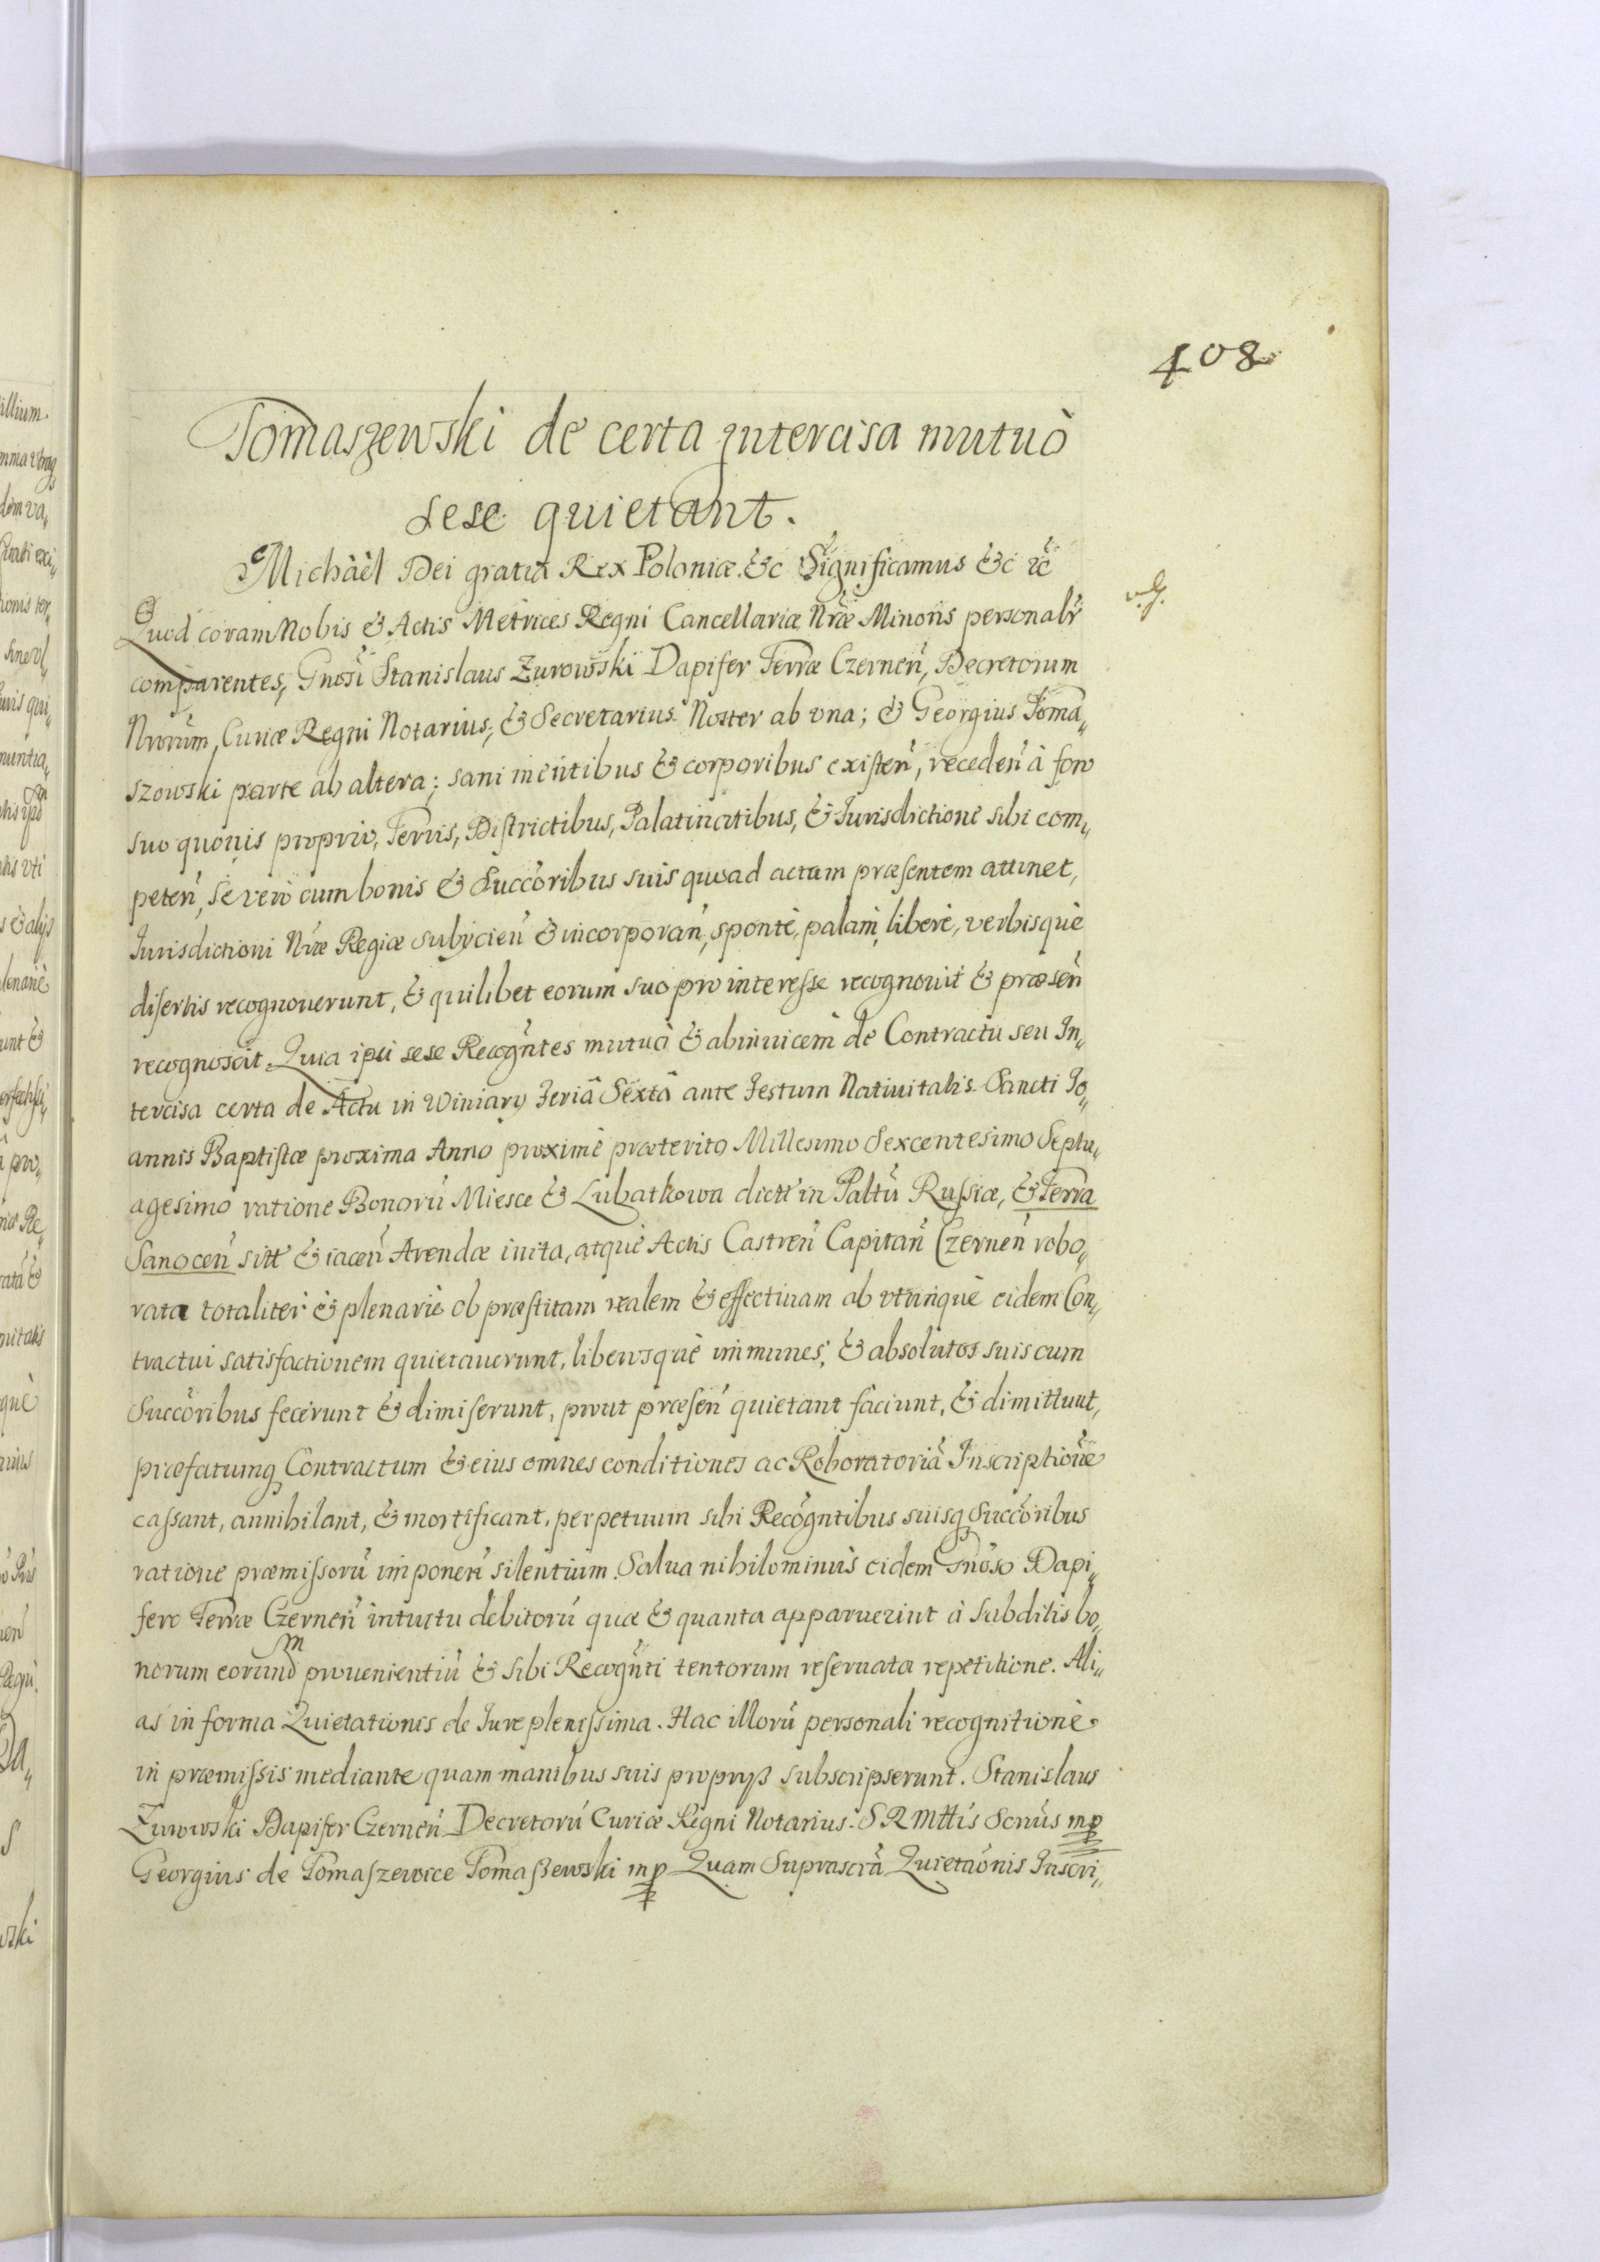 408
Tomaszewski de certa Intercisa mutuò
sese quietant.
Michàèl Dei gratia Rex Poloniæ &c Significamus &c &c
Quod coram Nobis & Actis Metrices Regni Cancellariæ Nræ Minoris personalr
comparentes, Gnosi Stanislaus Zurowski Dapifer Terræ Czernen, Decretorum
Nrorum, Curiæ Regni Notarius, & Secretarius Noster ab vna; & Georgius Toma„
szowski parte ab altera; sani mentibus & corporibus existen, receden à foro
suo quonis proprio, Terris, Districtibus, Palatinatibus, & Iurisdictione sibi com„
peten, se vero cum bonis & Succoribus suis quoad actum præsentem attinet,
Iurisdictioni Nræ Regiæ subijcien & incorporan, sponte, palam, libere, verbisque
disertis recognouerunt, & quilibet eorum suo pro interesse recognouit & præsen
recognoscit. Quia ipsi sese Recogntes mutuò & abinuicem de Contractu seu In„
tercisa certa de Actu in Winiary Feriâ Sextâ ante Festum Natiuitatis Sancti Io„
annis Baptistæ proxima Anno proximè præterito Millesimo Sexcentesimo Septu„
agesimo ratione Bonorũ Miesce & Lubatkowa dictt in Paltũ Russiæ, & Terra
Sanocen sitt & iacen Arendæ inita, atque Actis Castren Capitan Czernen robo„
rata totaliter & plenarie ob præstitam realem & effectiuam ab vtrinque eidem Con„
tractui satisfactionem quietauerunt, liberosque immunes, & absolutos suis cum
Succoribus fecerunt & dimiserunt, prout præsen quietant faciunt, & dimittunt,
præfatumq Contractum & eius omnes conditiones ac Roboratoriã Inscriptione
cassant, annihilant, & mortificant, perpetuum sibi Recogntibus suisq Succoribus
ratione præmissorũ imponen silentium. Salua nihilominus eidem Gnoso Dapi„
fero Terræ Czernen intuitu debitorũ quæ & quanta apparuerint à Subditis bo„
norum eorundm prouenientiũ & sibi Recognti tentorum reseruata repetitione. Ali„
as in forma Quietationis de Iure plenissima. Hac illorũ personali recognitione
in præmissis mediante quam manibus suis proprijs subscripserunt. Stanislaus
Zurowski Dapifer Czernen Decretorũ Curiæ Regni Notarius S R Mttis Scrius mp
Georgius de Tomaszewice Tomaszewski mp Quam Suprascrã Quietaonis Inscri„